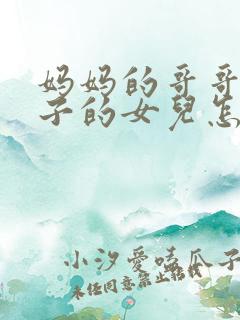 妈妈的哥哥
子的女兒怎
小汐愛嗑瓜子
未经同意禁止转载